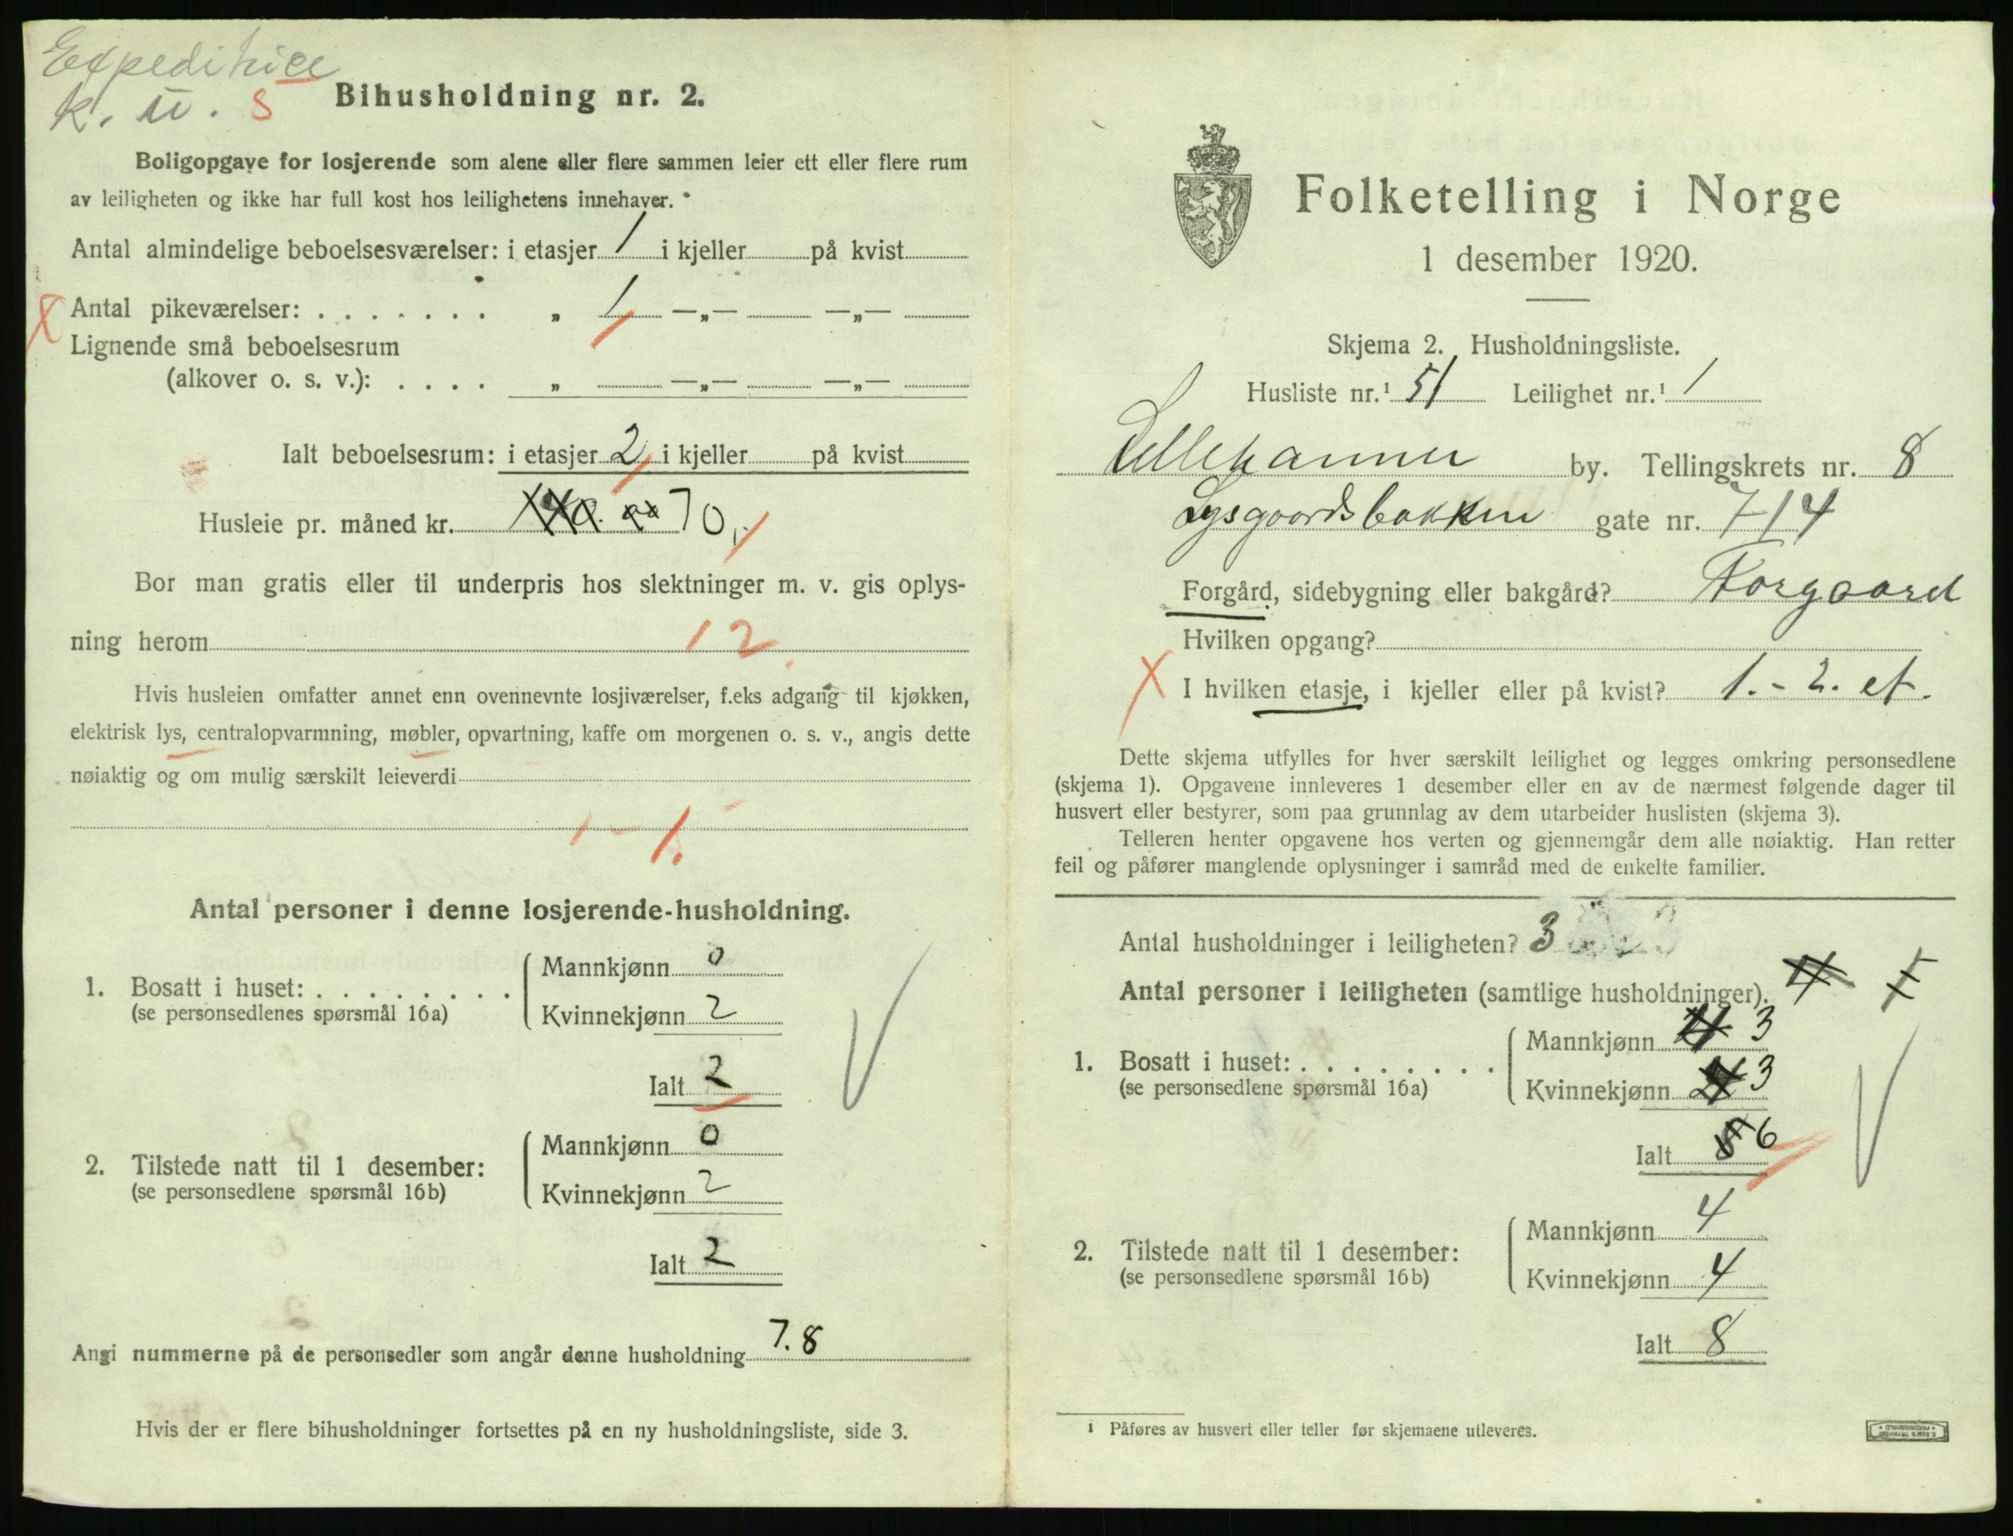 Expeditrice
K. u. S
Bihusholdning nr. 2.
Boligopgave for losjerende som alene eller flere sammen leier ett eller flere rum
av leiligheten og ikke har full kost hos leilighetens innehaver.
Antal almindelige beboelsesværelser: i etasjer 1 i kjeller på kvist
X Antal pikeværelser: . . . . . . . „ 1 —„— —„—
Lignende små beboelsesrum
(alkover o. s. v.): . . . . „ —„— —„—
Ialt beboelsesrum: i etasjer 2 i kjeller på kvist
Husleie pr. måned kr. 70,
Bor man gratis eller til underpris hos slektninger m. v. gis oplys-
ning herom 12
Hvis husleien omfatter annet enn ovennevnte losjiværelser, f.eks adgang til kjøkken,
elektrisk lys, centralopvarmning, møbler, opvartning, kaffe om morgenen o. s. v., angis dette
nøiaktig og om mulig særskilt leieverdi
1 - 1.
Antal personer i denne losjerende-husholdning.
1. Bosatt i huset: . . . . . . . .
(se personsedlenes spørsmål 16a)
Mannkjønn 0
Kvinnekjønn 2
Ialt 2
2. Tilstede natt til 1 desember:
(se personsedlene spørsmål 16b)
Mannkjønn 0
Kvinnekjønn 2
Ialt 2
Angi nummerne på de personsedler som angår denne husholdning 7. 8
Hvis der er flere bihusholdninger fortsettes på en ny husholdningsliste, side 3.
Folketelling i Norge
1 desember 1920.
Skjema 2. Husholdningsliste.
Husliste nr.¹ 51 Leilighet nr.¹ 1
Lillehammer by. Tellingskrets nr. 8
Lysgaardsbakken gate nr. 714
Forgård, sidebygning eller bakgård? Forgaard
Hvilken opgang?
X I hvilken etasje, i kjeller eller på kvist? 1. - 2. et.
Dette skjema utfylles for hver særskilt leilighet og legges omkring personsedlene
(skjema 1). Opgavene innleveres 1 desember eller en av de nærmest følgende dager til
husvert eller bestyrer, som paa grunnlag av dem utarbeider huslisten (skjema 3).
Telleren henter opgavene hos verten og gjennemgår dem alle nøiaktig. Han retter
feil og påfører manglende oplysninger i samråd med de enkelte familier.
Antal husholdninger i leiligheten? 3
Antal personer i leiligheten (samtlige husholdninger).
1. Bosatt i huset: . . . . . . . .
(se personsedlene spørsmål 16a)
Mannkjønn 3
Kvinnekjønn 3
Ialt 6
2. Tilstede natt til 1 desember:
(se personsedlene spørsmål 16b)
Mannkjønn 4
Kvinnekjønn 4
Ialt 8
1 Påføres av husvert eller teller før skjemaene utleveres.